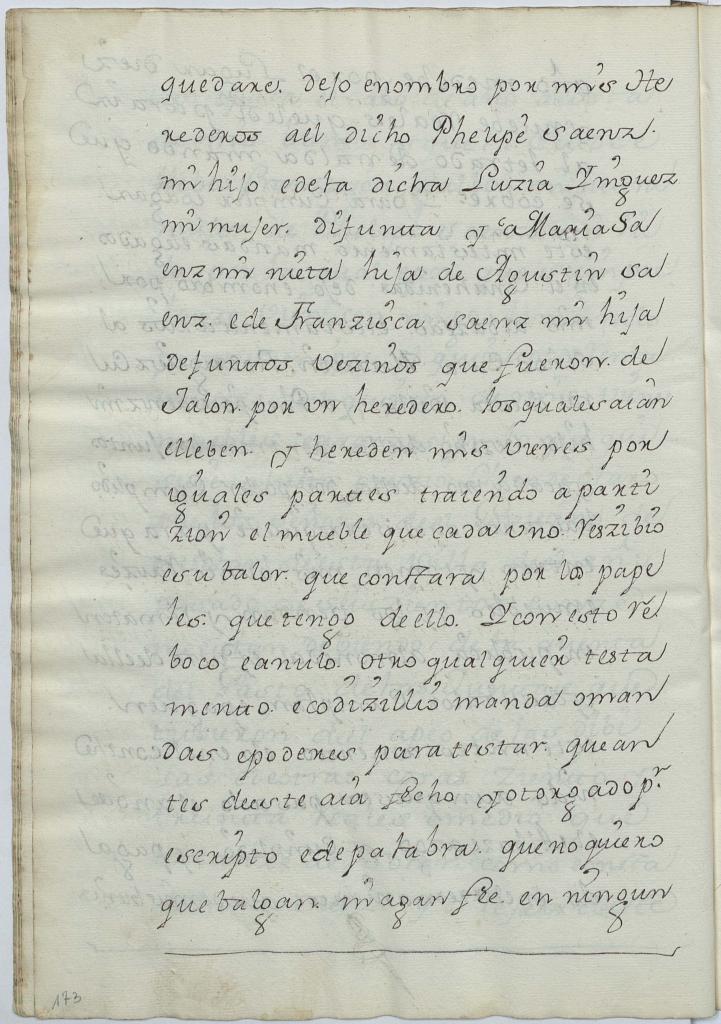 quedare. dejo enombro por mis He
rederos ael dicho Phelipe Saenz.
mi hijo edela dicha Luzia Yñiguez
mi mujer. difunta y a Maria Sa
enz mi nieta hija de Agustin sa
enz. ede Franzisca saenz mi hija
defuntos. vezinos que fueron. de
Jalon. por un heredero. los quales aian
elleben y hereden mis vienes por
iguales partes traiendo a parti
zion el mueble que cada uno reszibio
esu balor. que constara por los pape
les. que tengo de ello. Y con esto re
boco eanulo. otro qualquier testa
mento. ecodizillio manda o man
das epoderes para testar. que an
tes deeste aia fecho y otorgado pr.
escripto ede palabra. que no quiero
que balgan. ni agan fee. en ningun
173